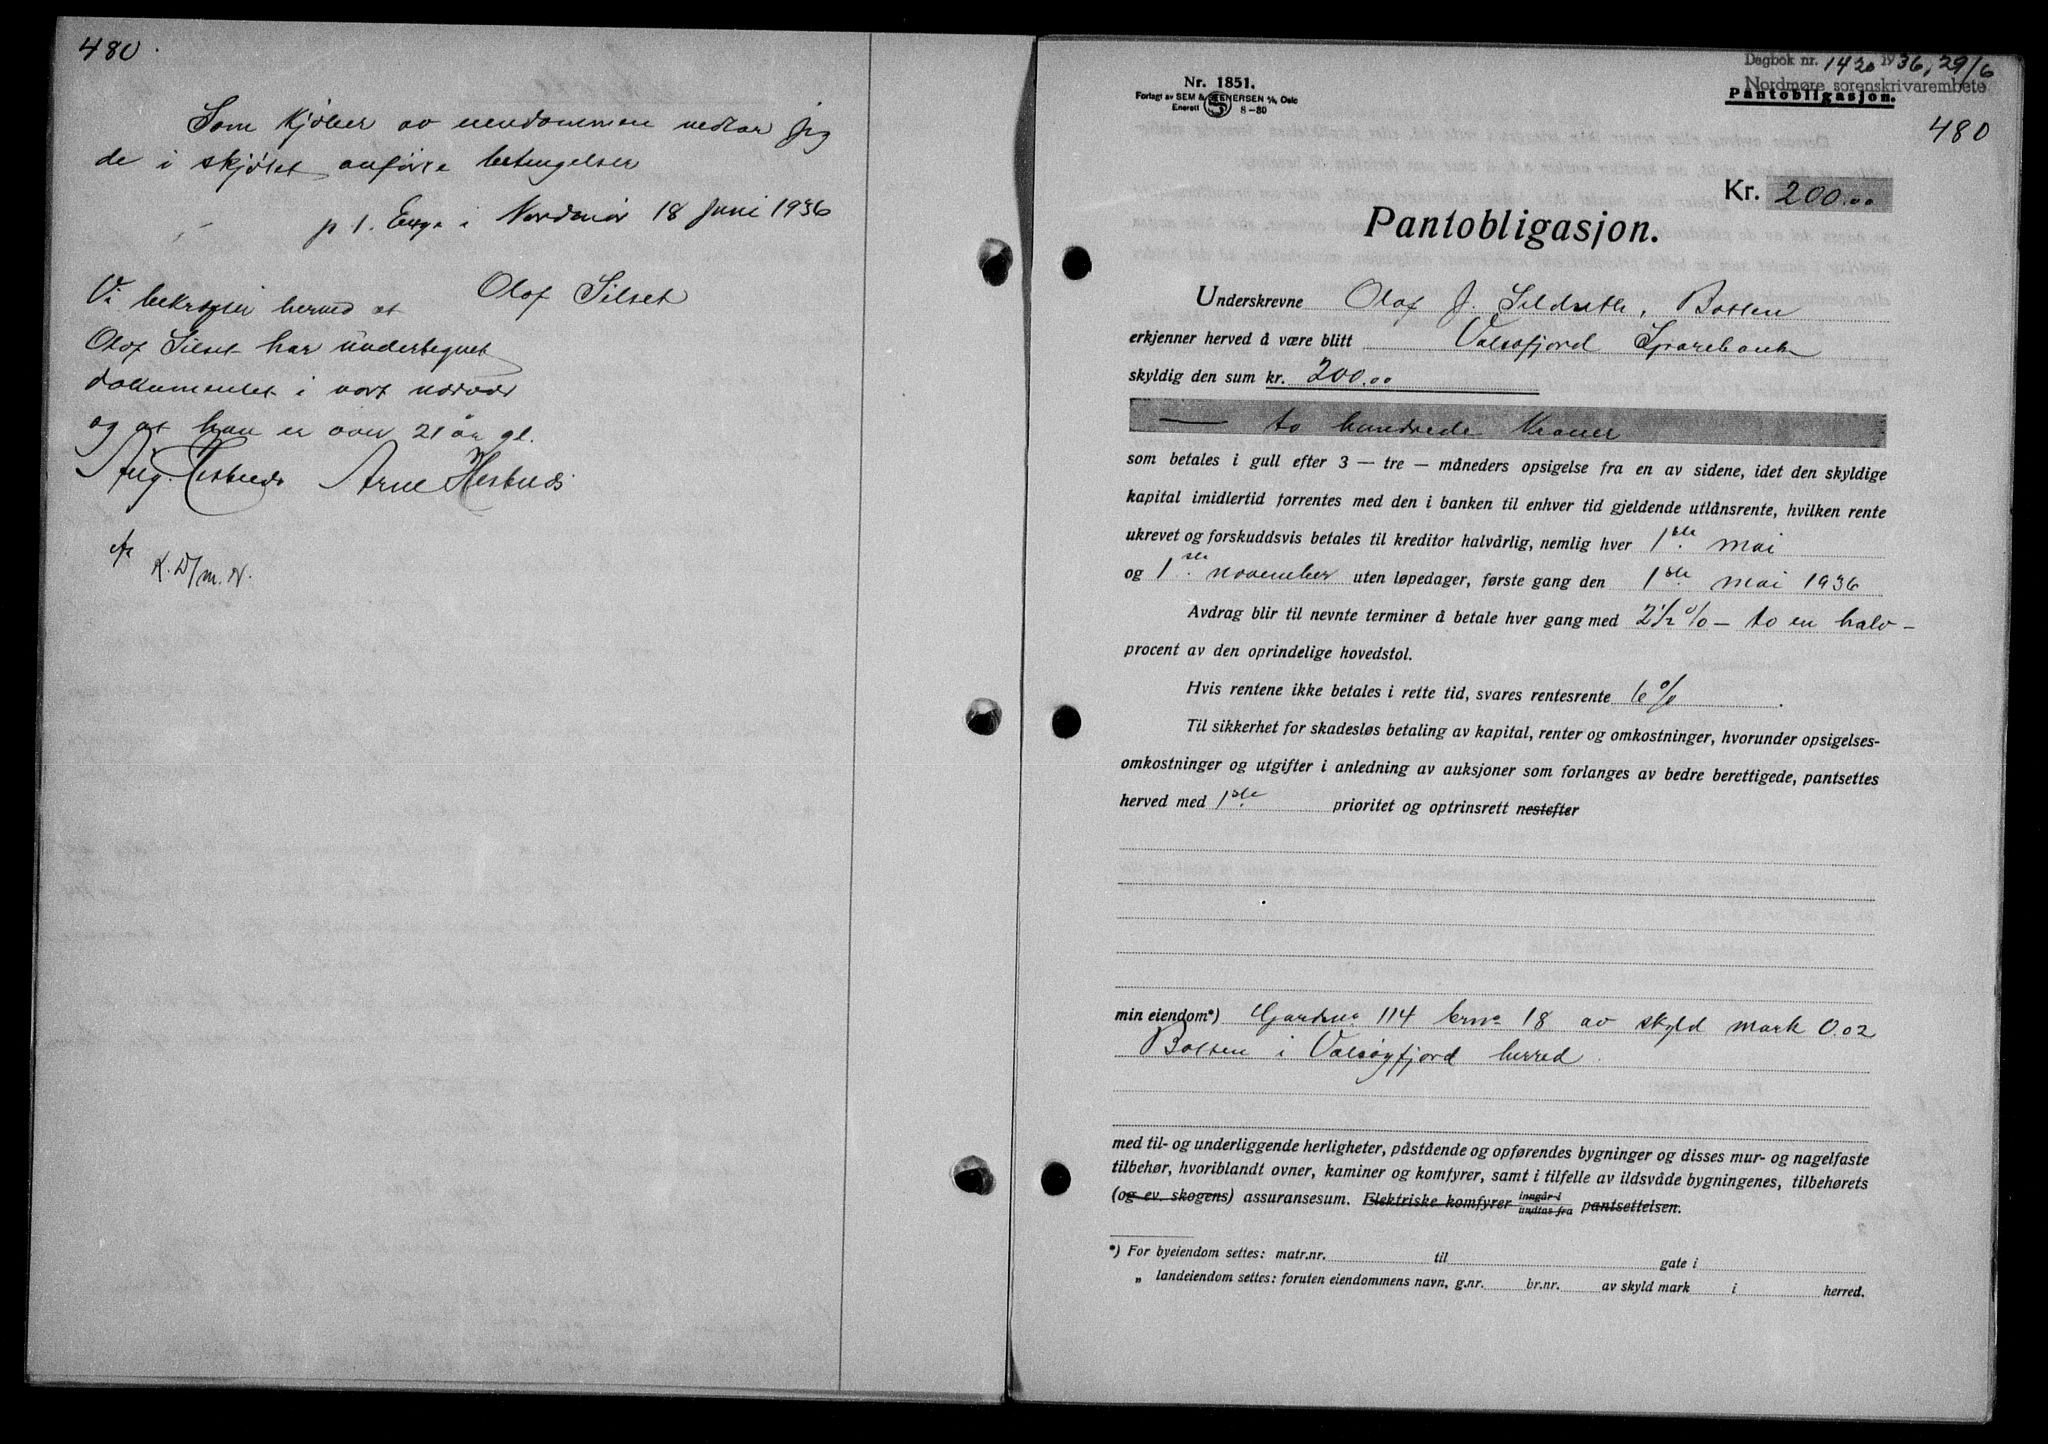 480
Som kjøber av eiendommen vedtar jeg
de i skjøtet anførte betingelser
p. t. Enge i Nordmør 18 Juni 1936
Olaf Silset
Vi bekrefter herved at
Olaf Silset har undertegnet
dokumentet i vort nærvær
og at han er over 21 år gl.
Arne Hestnes
K. D/m. N.
Dagbok nr. 1420 1936, 29/6
Nordmøre sorenskrivarembete
Nr. 1851.
Forlagt av SEM & STENERSEN A/S, Oslo
Enerett 8-30
Pantobligasjon.
480
Kr. 200.00
Pantobligasjon.
Underskrevne Olaf J. Sildseth, Botten
erkjenner herved å være blitt Valsøfjord Sparebank
skyldig den sum kr. 200.00
— to hundrede Kroner
som betales i gull efter 3 — tre — måneders opsigelse fra en av sidene, idet den skyldige
kapital imidlertid forrentes med den i banken til enhver tid gjeldende utlånsrente, hvilken rente
ukrevet og forskuddsvis betales til kreditor halvårlig, nemlig hver 1ste mai
og 1ste november uten løpedager, første gang den 1ste mai 1936
Avdrag blir til nevnte terminer å betale hver gang med 2½ % – to en halv –
procent av den oprindelige hovedstol.
Hvis rentene ikke betales i rette tid, svares rentesrente 6 % .
Til sikkerhet for skadesløs betaling av kapital, renter og omkostninger, hvorunder opsigelses-
omkostninger og utgifter i anledning av auksjoner som forlanges av bedre berettigede, pantsettes
herved med 1ste prioritet og optrinsrett nestefter
min eiendom*) Gardsno 114 brno 18 av skyld mark 0.02
Botten i Valsøyfjord herred.
med til- og underliggende herligheter, påstående og opførendes bygninger og disses mur- og nagelfaste
tilbehør, hvoriblandt ovner, kaminer og komfyrer, samt i tilfelle av ildsvåde bygningenes, tilbehørets
(og ev. skogens) assuransesum. Elektriske komfyrer inngår i / undtas fra pantsettelsen.
*) For byeiendom settes: matr.nr. til gate i
„ landeiendom settes: foruten eiendommens navn, g.nr. br.nr. av skyld mark i herred.